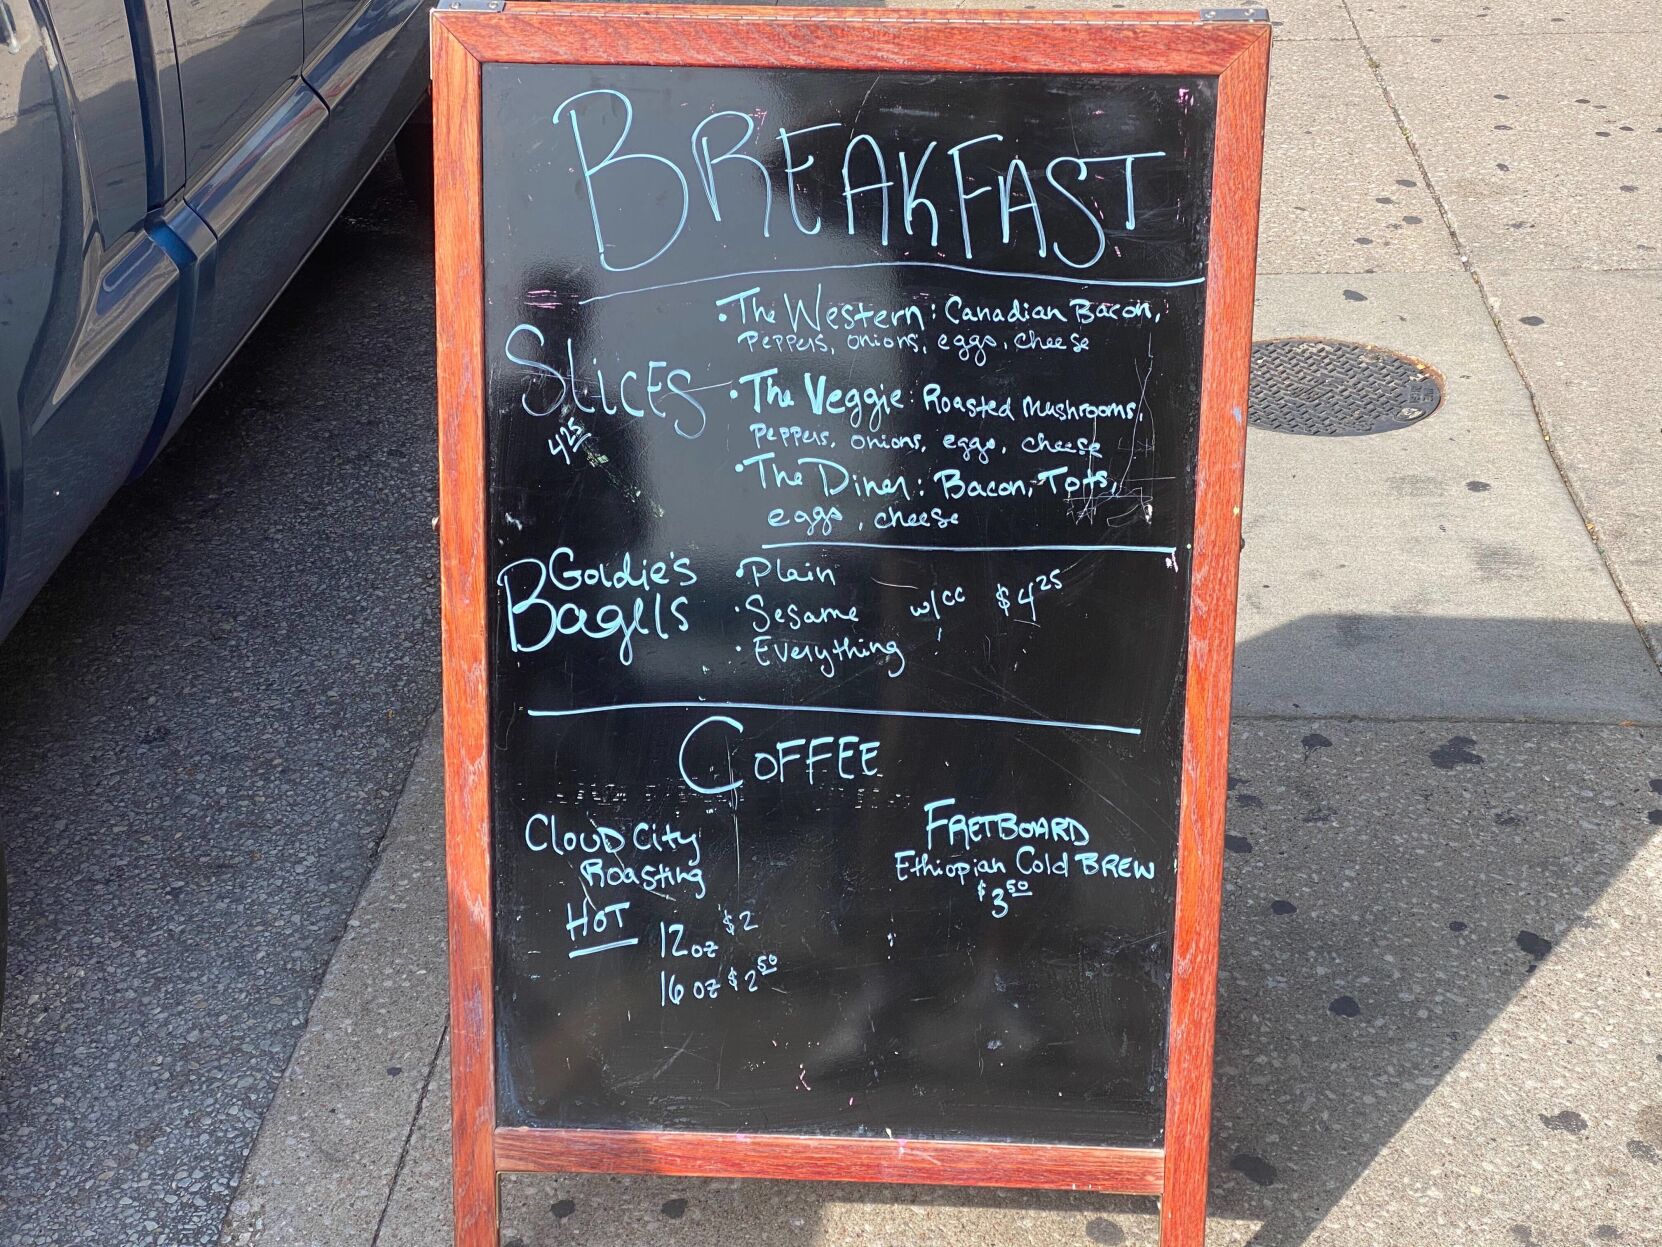 BREAKFAST
SLICES
4.25
• The Western: Canadian Bacon,
Peppers, onions, eggs, cheese
• The Veggie: Roasted Mushrooms,
Peppers, onions, eggs, cheese
• The Diner: Bacon, Tots,
eggs, cheese
Goldie's
Bagels
• Plain
• Sesame w/cc $4.25
• Everything
COFFEE
Cloud City
Roasting
HOT
12oz $2
16 oz $2.50
FRETBOARD
Ethiopian Cold BREW
$3.50